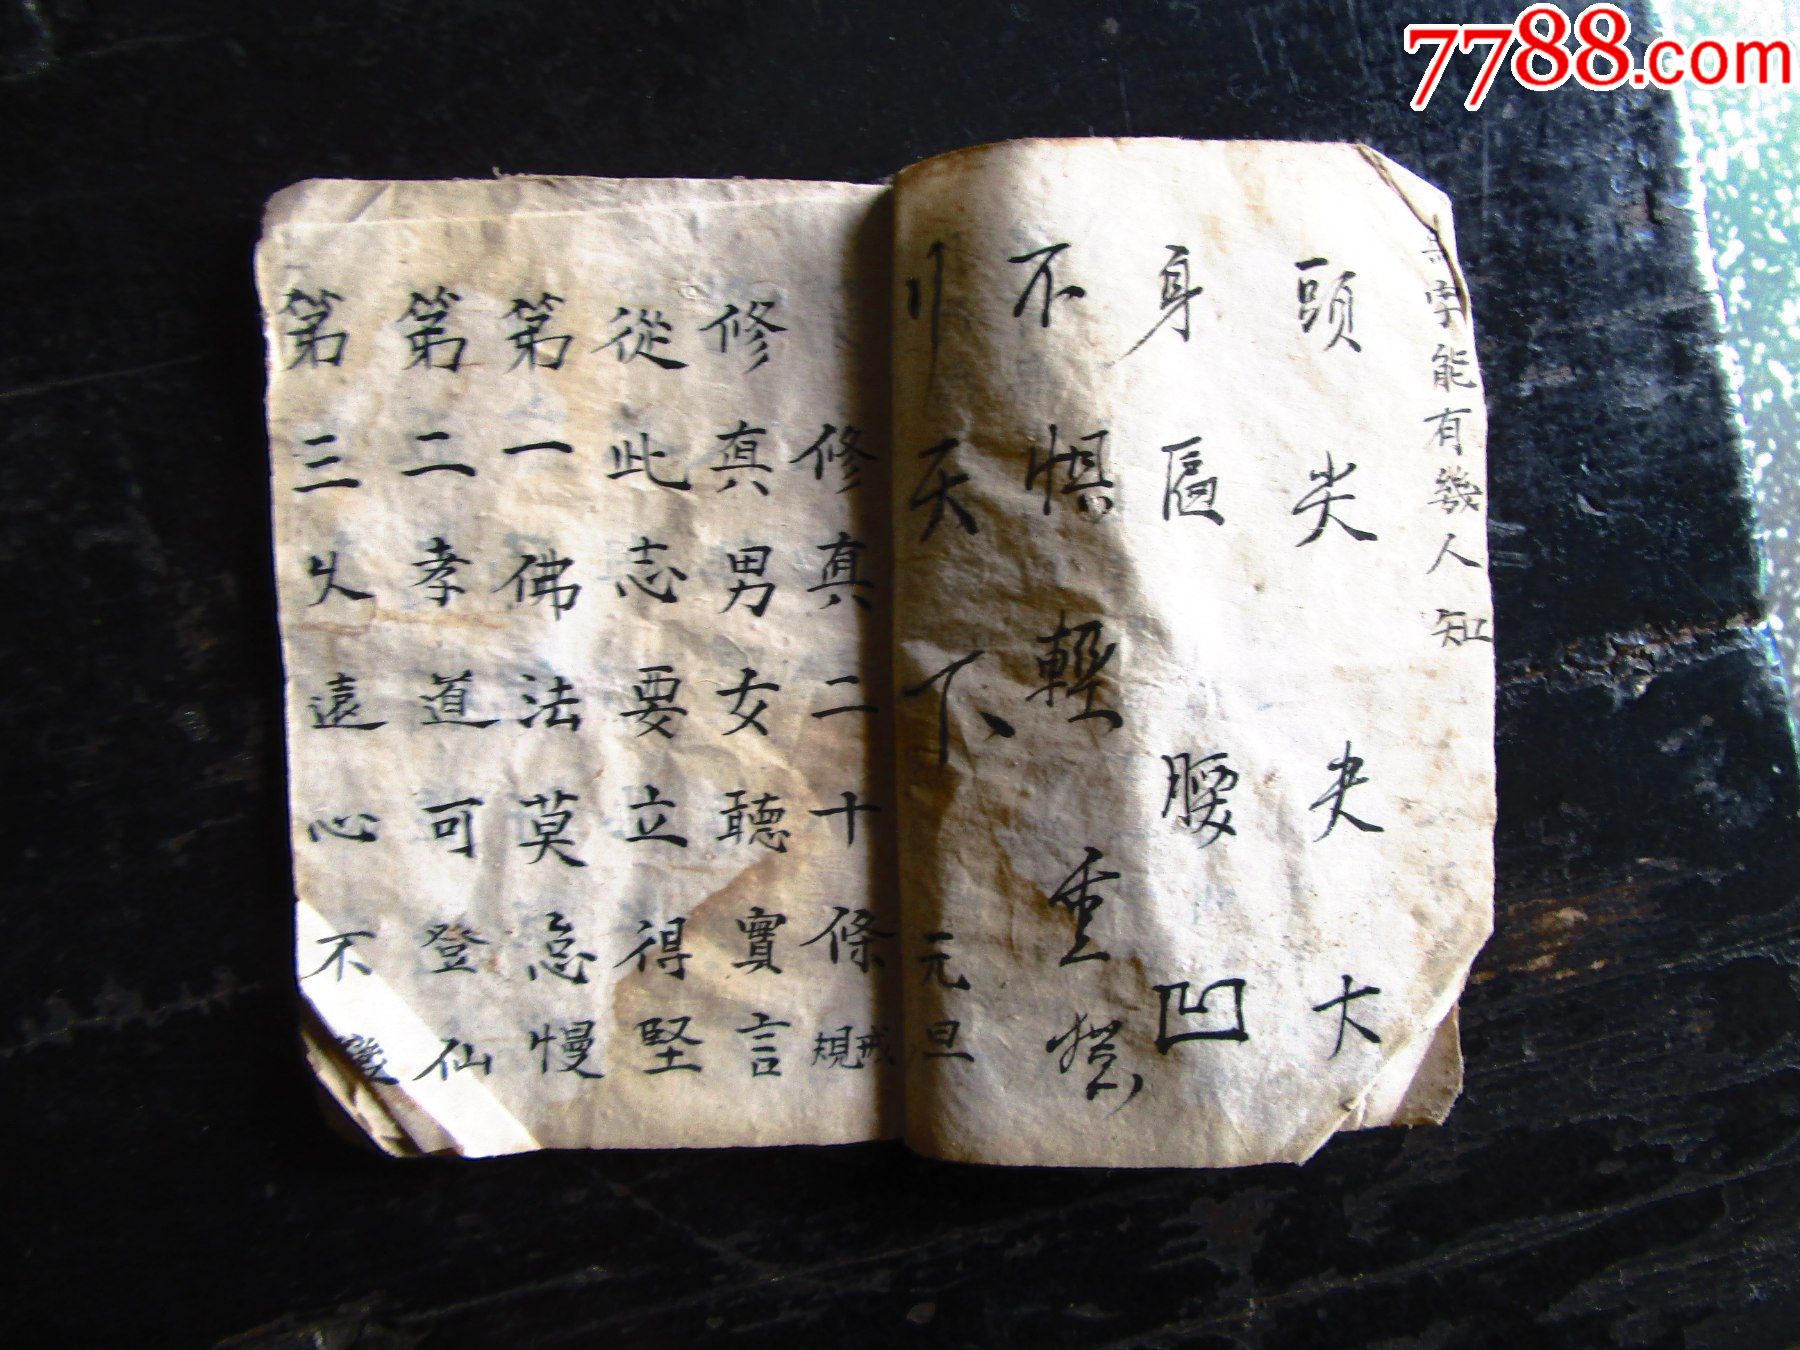 7788.com
字能有幾人知
頭尖夫大
身匾腰凹
不惧輕重
天下元旦
修真二十條規戒
修真男女聽實言
從此志要立得堅
第一佛法莫怠慢
第二孝道可登仙
第三久遠心不